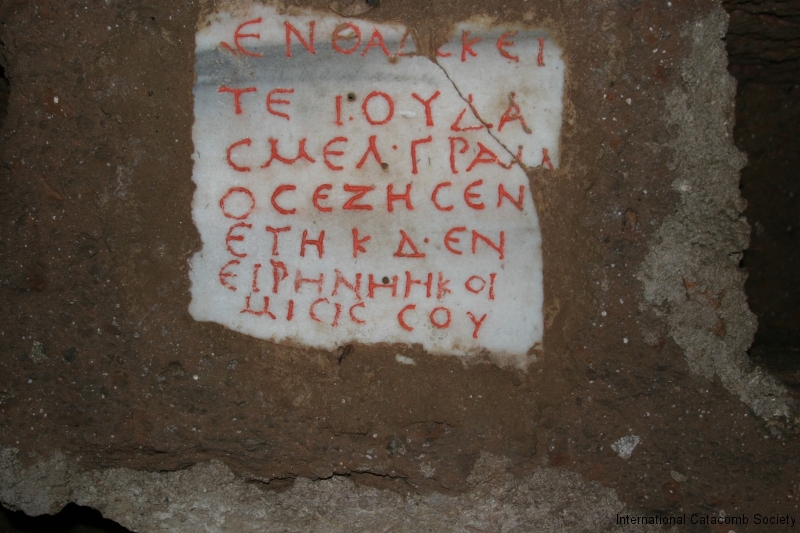 ΕΝΘΑΔΕ ΚΕΙ
ΤΕ ΙΟΥΔΑ
С ΜΕΛ·ΓΡΑΜ
ΟС ΕΖΗСΕΝ
ΕΤΗ ΚΔ·ΕΝ
ΕΙΡΗΝΗ Η ΚΟΙ
ΜΙСΙС СΟΥ
International Catacomb Society